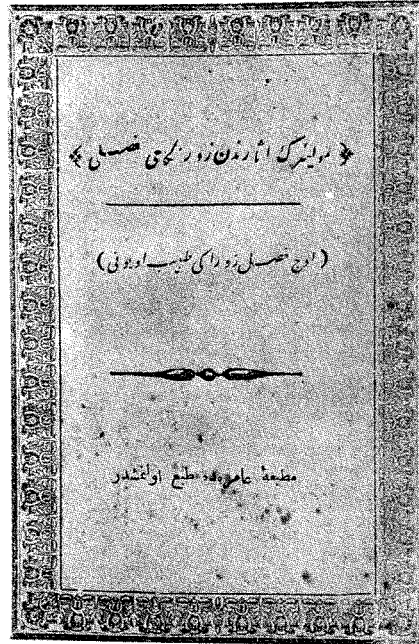 ﴿ مولیرك اثارندن زور نكاحی فصلی ﴾
(اوچ فصل زوراكی طبیب اویونی)
مطبعهٔ عامره‌ده طبع اولنمشدر